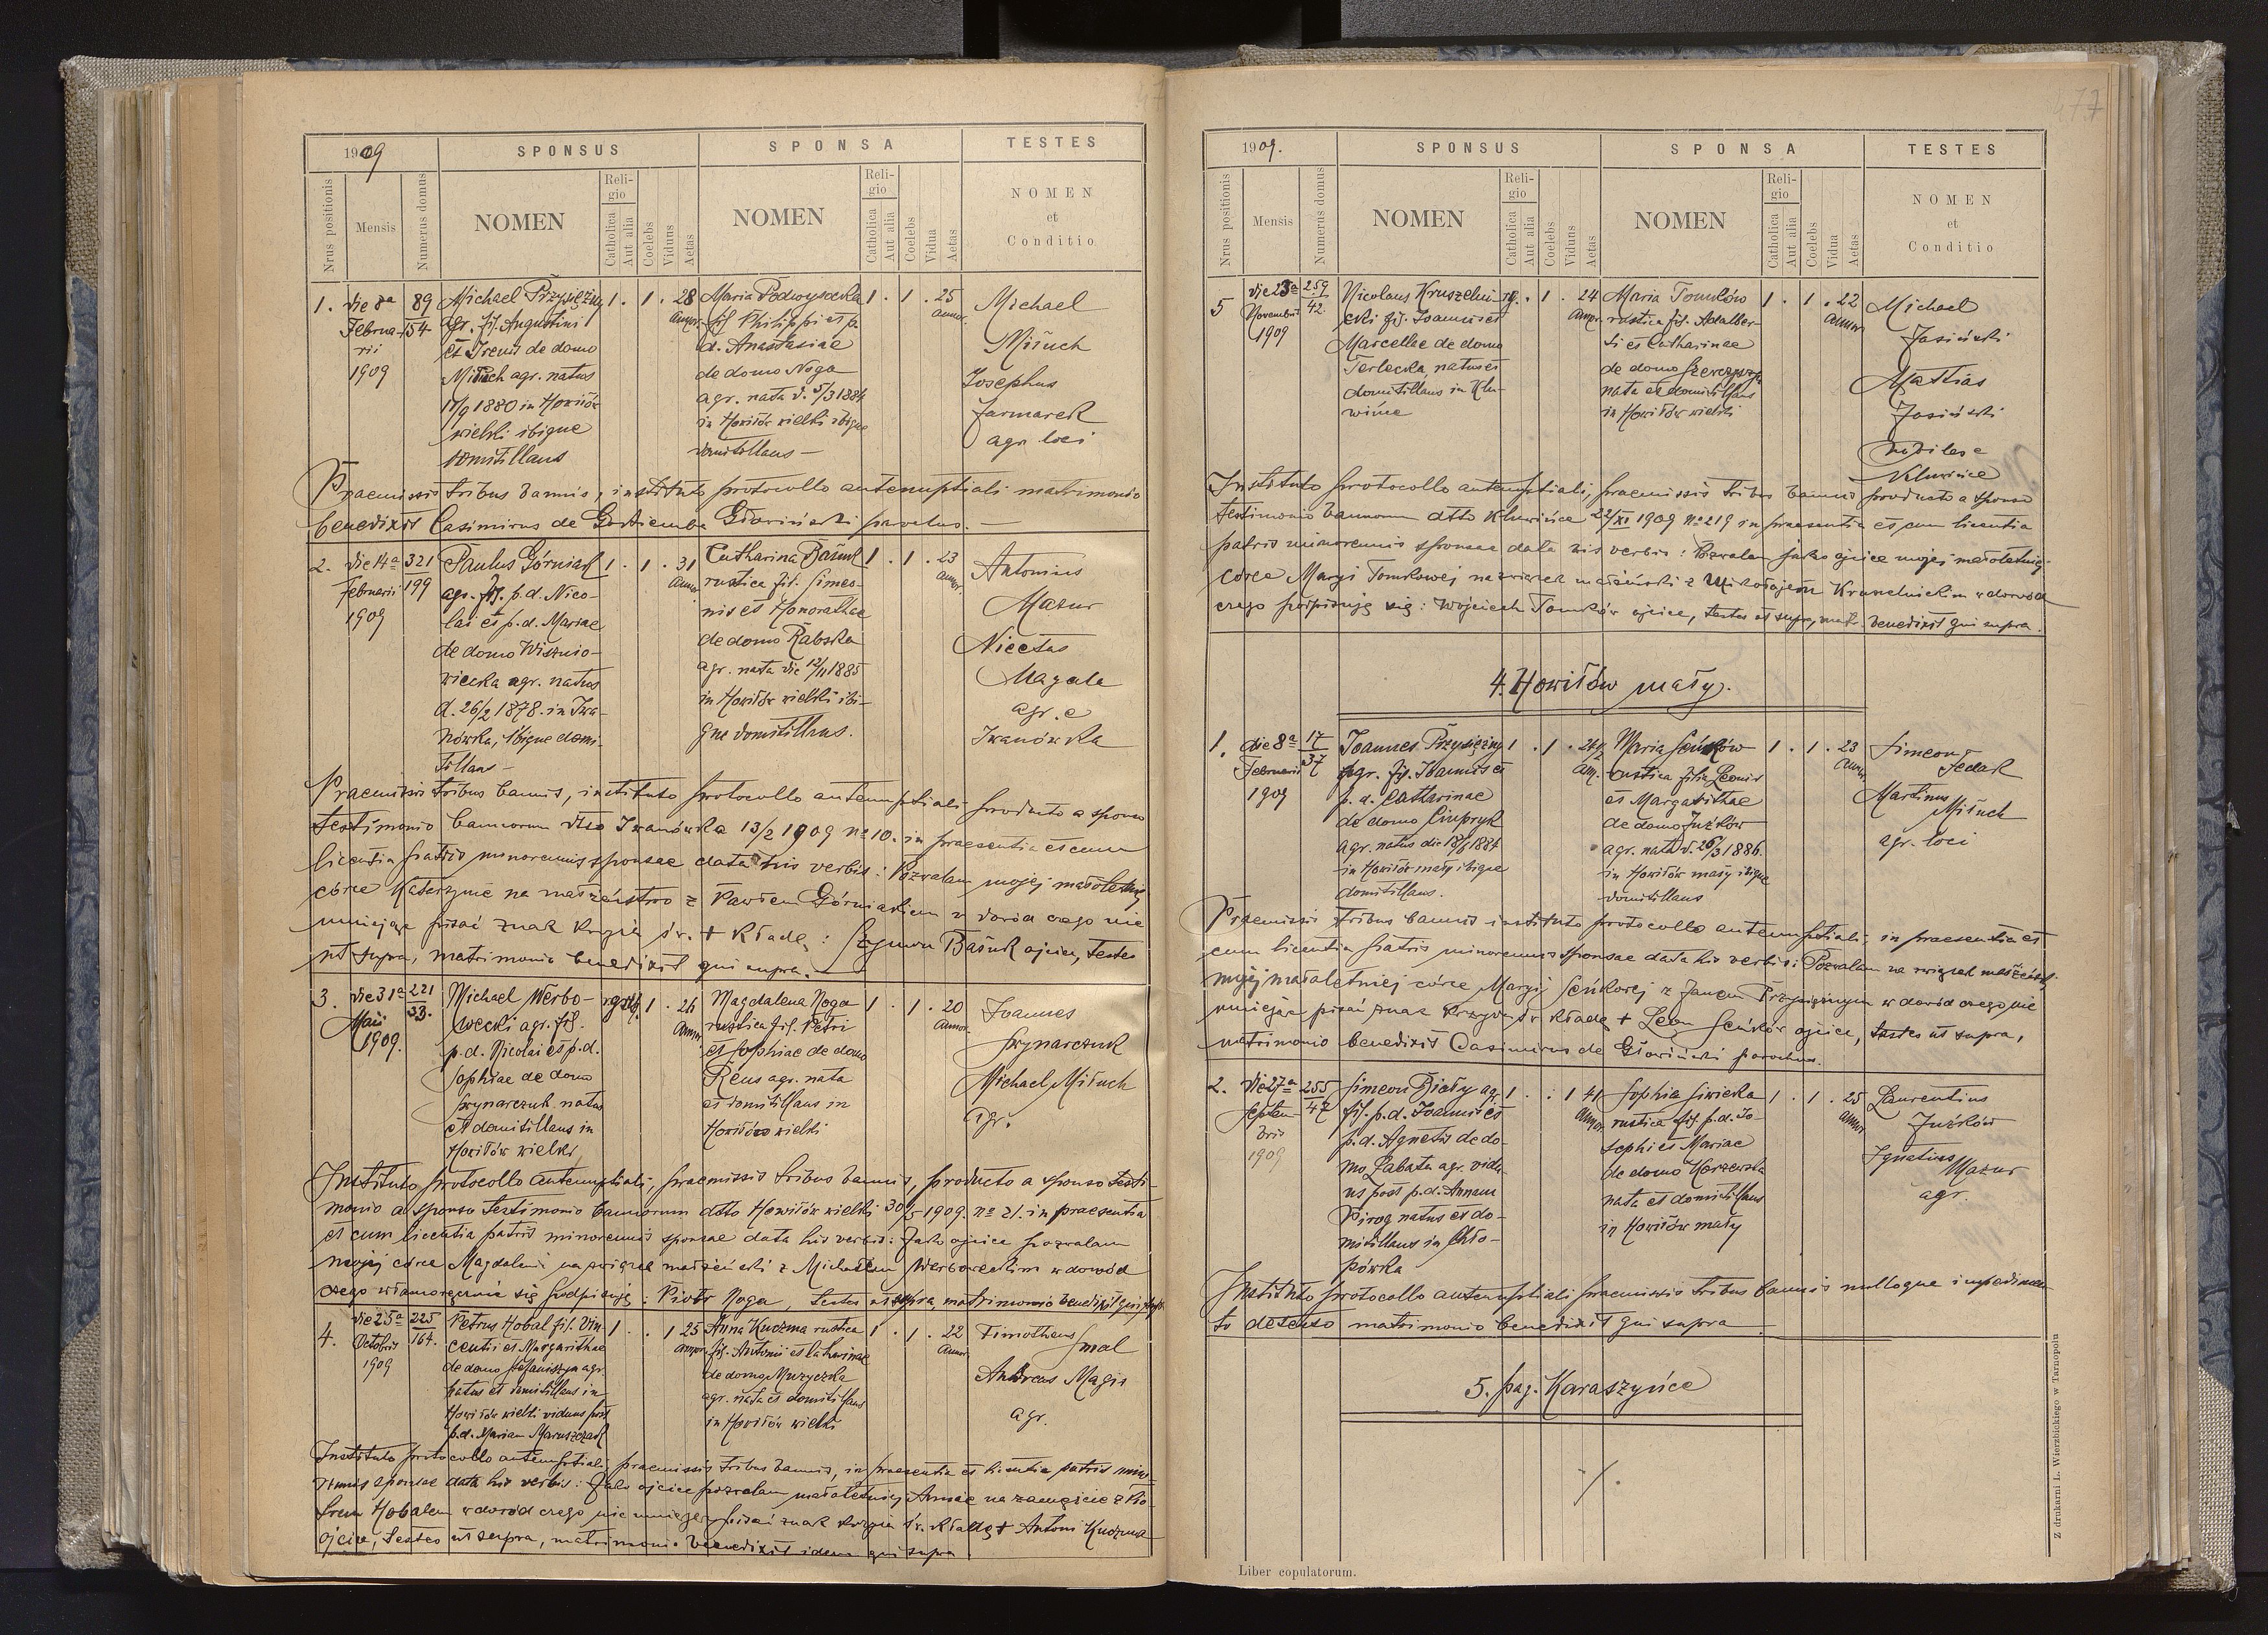 1909
SPONSUS
SPONSA
TESTES
Nrus positionis
Mensis
Numerus domus
NOMEN
Religio
Catholica
Aut alia
Coelebs
Viduus
Aetas
NOMEN
Religio
Catholica
Aut alia
Coelebs
Vidua
Aetas
NOMEN
et
Conditio
1. die 8a Februarii 1909
89
154
Michael Przysiężny
agr. fil. Augustini
et Irenis de domo
Miśuch agr. natus
1880 in Howiłów
wielki ibique
domitillans
1 . 1 . 28 annor.
Maria Podwysocka
fil. Philippi et p.
d. Anastasiae
de domo Noga
agr. nata d. 5/3 1884
in Howiłów wielki ibique
domitillans —
1 . 1 . 25 annor.
Michael
Miśuch
Josephus
Jarmarek
agr. loci
Praemissis tribus bannis, instituto protocollo antenuptiali matrimonio
benedixit Casimirus de Głowiński parochus. —
2. die 14a Februarii 1909
321
199
Paulus Górniak
agr. fil. p.d. Nico-
lai et p.d. Mariae
de domo Wisznio-
wiecka agr. natus
d. 26/2 1878. in Iwa-
nówka, ibique domi-
tillans —
1 . 1 . 31 annor.
Catharina Baśuk
rustica fil. Simeo-
nis et Honorathae
de domo Rabska
agr. nata die 12/11 1885
in Howiłów wielki ibi-
que domitillans.
1 . 1 . 23 annor.
Antonius
Mazur
Nicetas
Magala
agr. e
Iwanówka
Praemissis tribus bannis, instituto protocollo antenuptiali producto a sponso
testimonio bannorum dtto Iwanówka 13/2 1909 no 10. in praesentia et cum
licentia patris minorennis sponsae data his verbis: Pozwalam mojej małoletniej
córce Katarzynie na małżeństwo z Pawłem Górniakiem w dowód czego nie
umiejąc pisać znak krzyża św. + kładę: Szymon Baśuk ojciec, testes
ut supra, matrimonio benedixit qui supra. —
3. die 31a Maii 1909.
221
33.
Michael Werbo-
wecki agr. fil.
p.d. Nicolai et p.d.
Sophiae de domo
Swynarczuk natus
et domitillans in
Howiłów wielki
1 . 26 annor.
Magdalena Noga
rustica fil. Petri
et Sophiae de domo
Reus agr. nata
et domitillans in
Howiłów wielki
1 . 1 . 20 annor.
Joannes
Swynarczuk
Michael Miśuch
agr.
Instituto protocollo antenuptiali, praemissis tribus bannis, producto a sponso testi-
monio a sponso testimonio bannorum dtto Howiłów wielki 30/5 1909. no 21. in praesentia
et cum licentia patris minorennis sponsae data his verbis: Jako ojciec pozwalam
mojej córce Magdalenie na związek małżeński z Michałem Werboweckim w dowód
czego własnoręcznie się podpisuję: Piotr Noga, testes ut supra, matrimonio benedixit qui supra
4. die 25a Octobris 1909
225
164.
Petrus Hobal fil. Vin-
centii et Margarithae
de domo Stefaniszyn agr.
natus et domitillans in
Howiłów wielki viduus post
p.d. Mariam Maruszczak
1 . . 1 25 annor.
Anna Kuczma rustica
fil. Antonii et Catharinae
de domo Muzyczka
agr. nata et domitillans
in Howiłów wielki
1 . 1 . 22 annor.
Timotheus
Smal
Andreas Magis
agr.
Instituto protocollo antenuptiali praemissis tribus bannis, in praesentia et licentia patris mino-
rennis sponsae data his verbis: Jako ojciec pozwalam małoletniej Annie na zamęście z Pio-
trem Hobalem w dowód czego nie umiejący pisać znak krzyża św. kładę + Antoni Kuczma
ojciec, testes ut supra, matrimonio benedixit idem qui supra.
477
1909.
SPONSUS
SPONSA
TESTES
Nrus positionis
Mensis
Numerus domus
NOMEN
Religio
Catholica
Aut alia
Coelebs
Viduus
Aetas
NOMEN
Religio
Catholica
Aut alia
Coelebs
Vidua
Aetas
NOMEN
et
Conditio
5 die 23a Novembris 1909
259
42.
Nicolaus Kruszelni-
cki fil. Joannis et
Marcellae de domo
Terlecka, natus et
domitillans in Klu-
wińce
1 . 24 annor.
Maria Tomków
rustica fil. Adalber-
ti et Catharinae
de domo
nata et domitillans
in Howiłów wielki
1 . 1 . 22 annor.
Michael
Jasiński
Mattias
Jasiński
nobiles e
Kluwińce
Instituto protocollo antenuptiali, praemissis tribus bannis producto a sponso
testimonio bannorum dtto Kluwińce 22/XI 1909 no 219 in praesentia et cum licentia
patris minorennis sponsae data his verbis: Pozwalam jako ojciec mojej małoletniej
córce Maryi Tomkowej na związek małżeński z Mikołajem Kruszelnickim w dowód
czego podpisuję się: Wojciech Tomków ojciec, testes ut supra, matr. benedixit qui supra.
4. Howiłów mały.
1. die 8a Februarii 1909
17
37
Joannes Przysiężny
agr. fil. Joannis et
p.d. Catharinae
de domo Ciupryk
agr. natus die 1884
in Howiłów mały ibique
domitillans.
1 . 1 . 24 1/2 an.
Maria Seńków
rustica filia Leonis
et Margarithae
de domo Juźków
agr. nata d. 26/3 1886.
in Howiłów mały ibique
domitillans
1 . 1 . 23 annor.
Simeon
Fedak
Martinus
Miśuch
agr. loci
Praemissis tribus bannis instituto protocollo antenuptiali, in praesentia et
cum licentia patris minorennis sponsae data his verbis: Pozwalam na związek małżeński
mojej małoletniej córce Maryi Seńkowej z Janem Przysiężnym w dowód czego nie
umiejąc pisać znak krzyża św. kładę + Leon Seńków ojciec, testes ut supra,
matrimonio benedixit Casimirus de Głowiński parochus.
2. die 27a Septembris 1909
255
47
Simeon Biały agr.
fil. p.d. Joannis et
p.d. Agnetis de do-
mo Labata agr. vidu-
us post p.d. Annam
Pirog natus et do-
mitillans in Chło-
pówka
1 . . 1 41 annor.
Sophia Siwicka
rustica fil. p.d. Jo-
sephi et Mariae
de domo Korzewska
nata et domitillans
in Howiłów mały
1 . 1 . 25 annor.
Laurentius
Juźków
Ignatius
Mazur
agr.
Instituto protocollo antenuptiali praemissis tribus bannis nulloque impedimen-
to detecto matrimonio benedixit qui supra
5. pag. Karaszyńce
./.
Liber copulatorum.
Z drukarni L. Wierzbickiego w Tarnopolu